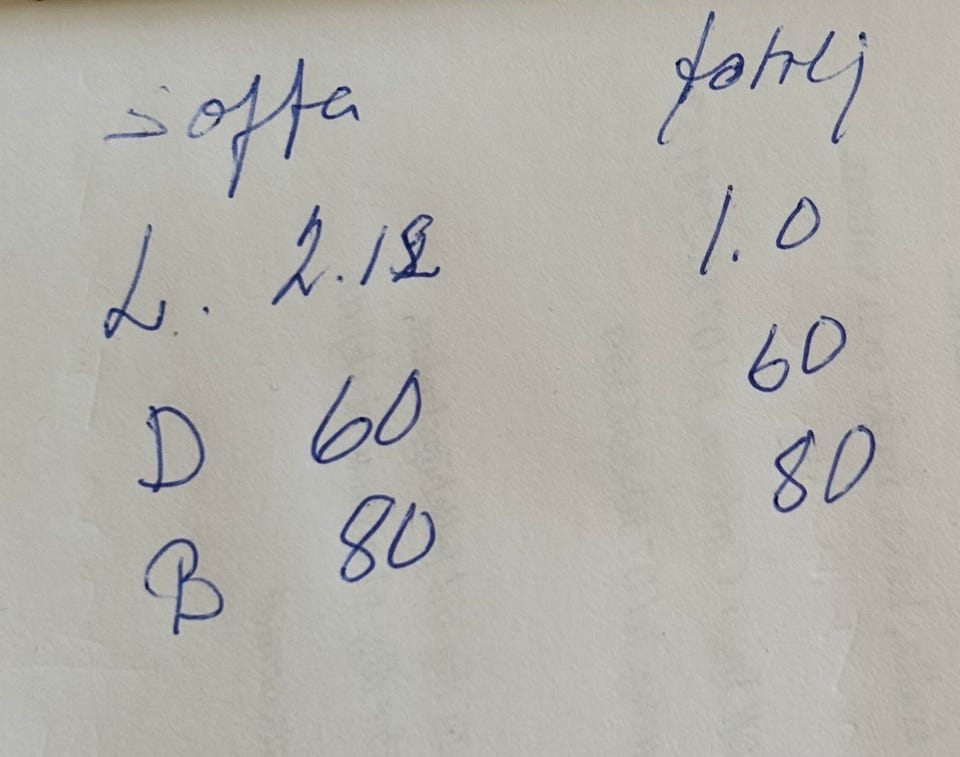 soffa fotölj
L. 2.12 1.0
D 60 60
B 80 80